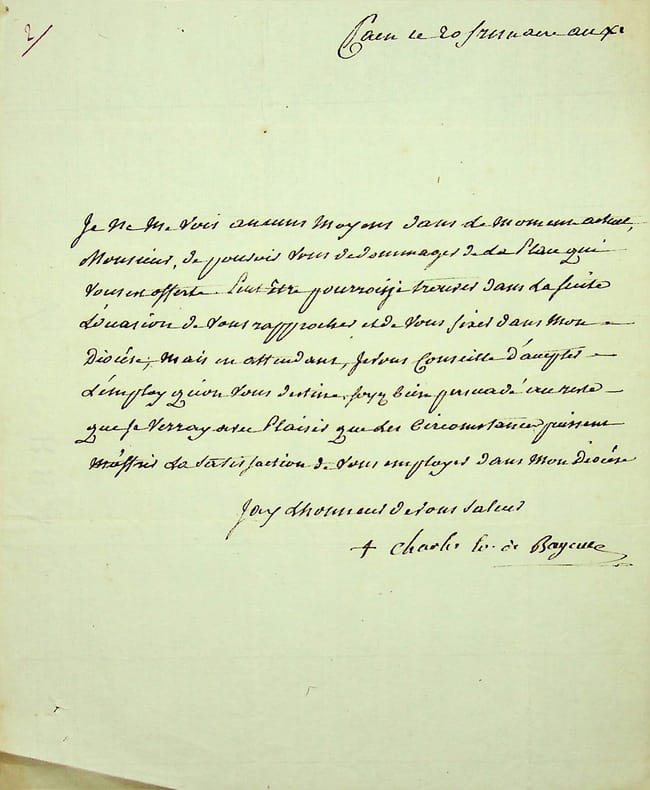 2/
Caen le 20 frimaire an xi
Je ne me vois aucuns moyens dans le moment actuel,
Monsieur, de pouvoir vous dedommager de la place qui
vous est offerte. Peut être pourroisje trouver dans la suite
L'occasion de vous rapprocher et de vous fixer dans mon
Diocèse; mais en attendant, je vous conseille d'accepter
L'employ qu'on vous destine. soyez bien persuadé au reste
que je verray avec plaisir que les circonstances puissent
m'offrir la satisfaction de vous employer dans mon Diocèse
J'ay L'honneur de vous saluer
+ Charles Ev. de Bayeux